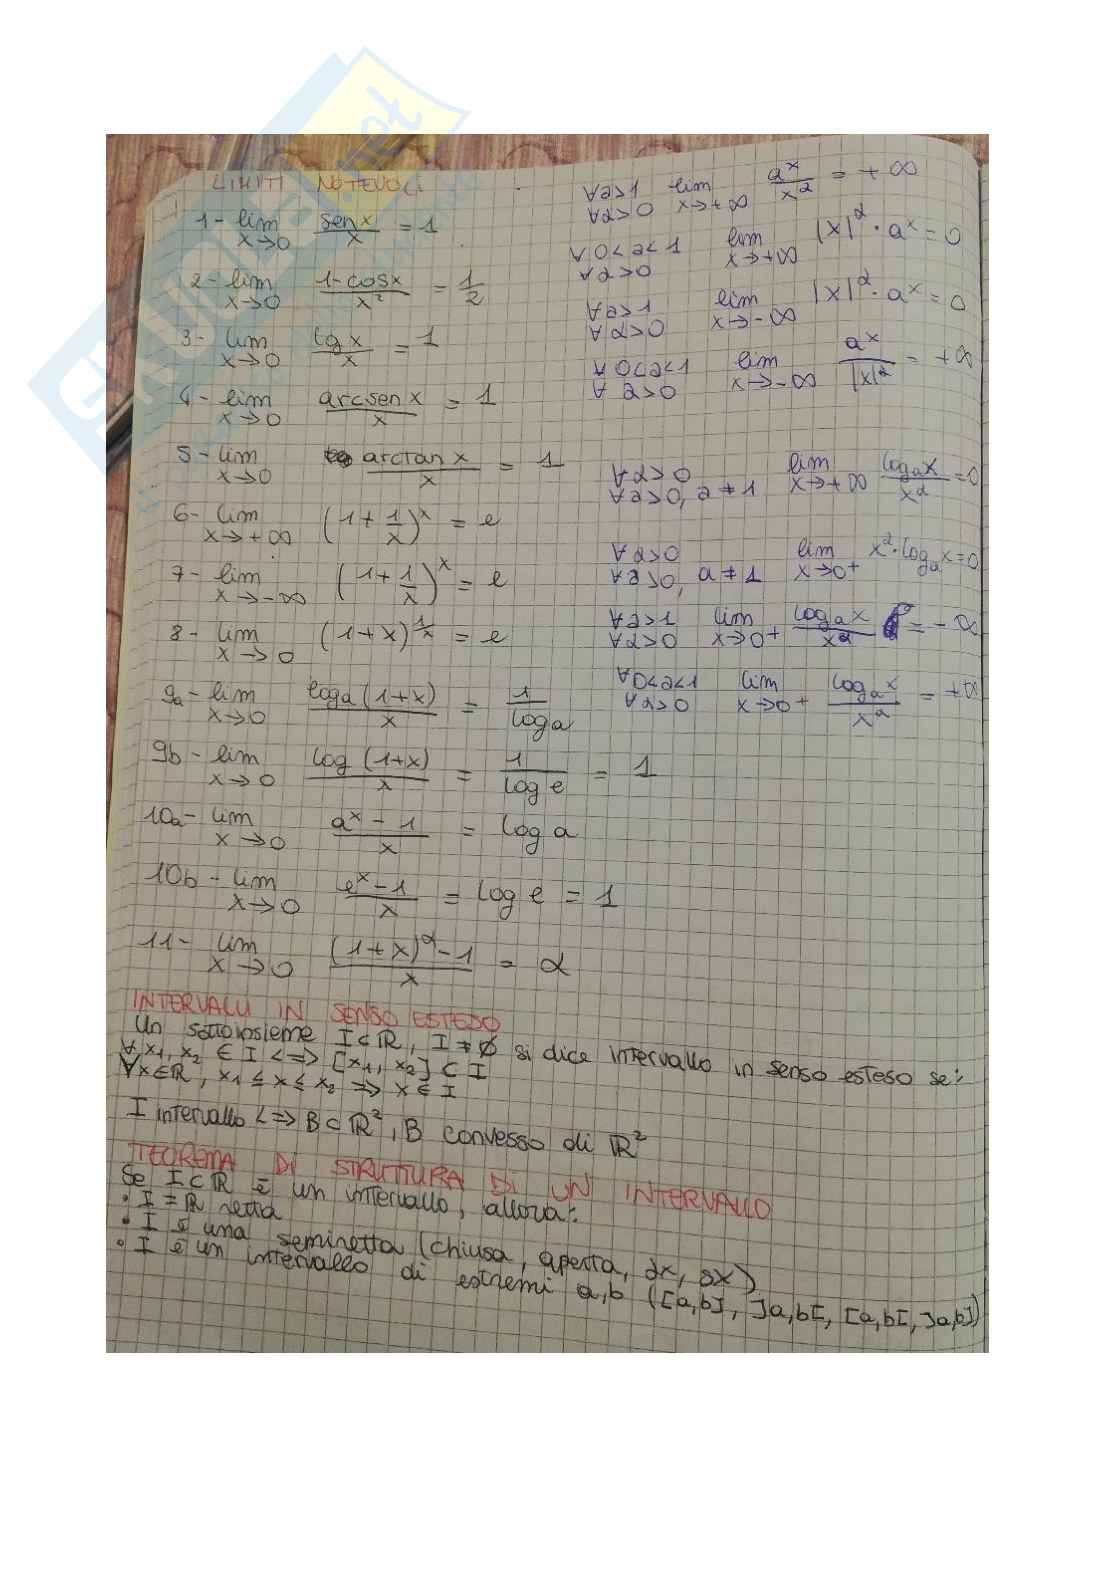 LIMITI NOTEVOLI
1- lim x→0 sen x / x = 1
2- lim x→0 1-cosx / x² = 1/2
3- lim x→0 tg x / x = 1
4- lim x→0 arcsen x / x = 1
5- lim x→0 arctan x / x = 1
6- lim x→+∞ (1+1/x)^x = e
7- lim x→-∞ (1+1/x)^x = e
8- lim x→0 (1+x)^1/x = e
9a- lim x→0 loga(1+x) / x = 1 / log a
9b- lim x→0 log(1+x) / x = 1 / log e = 1
10a- lim x→0 a^x - 1 / x = log a
10b- lim x→0 e^x - 1 / x = log e = 1
11- lim x→0 (1+x)^α - 1 / x = α
∀a>1 ∀α>0 lim x→+∞ a^x / x^α = +∞
∀ 0<a<1 ∀α>0 lim x→+∞ |x|^α · a^x = 0
∀a>1 ∀α>0 lim x→-∞ |x|^α · a^x = 0
∀ 0<a<1 ∀ α>0 lim x→-∞ a^x / |x|^α = +∞
∀α>0 ∀a>0, a≠1 lim x→+∞ logₐx / x^α = 0
∀α>0 ∀a>0, a≠1 lim x→0+ x^α · logₐx = 0
∀a>1 ∀α>0 lim x→0+ logₐx / x^α = -∞
∀0<a<1 ∀α>0 lim x→0+ logₐx / x^α = +∞
INTERVALLI IN SENSO ESTESO
Un sottoinsieme I⊂ℝ, I≠∅ si dice intervallo in senso esteso se:
∀x₁, x₂ ∈ I <=> [x₁, x₂] ⊂ I
∀x∈ℝ, x₁ ≤ x ≤ x₂ => x ∈ I
I intervallo <=> B⊂ℝ², B convesso di ℝ²
TEOREMA DI STRUTTURA DI UN INTERVALLO
Se I⊂ℝ è un intervallo, allora:
• I = ℝ retta
• I è una semiretta (chiusa, aperta, dx, sx)
• I è un intervallo di estremi a,b ([a,b], ]a,b[, [a,b[, ]a,b])